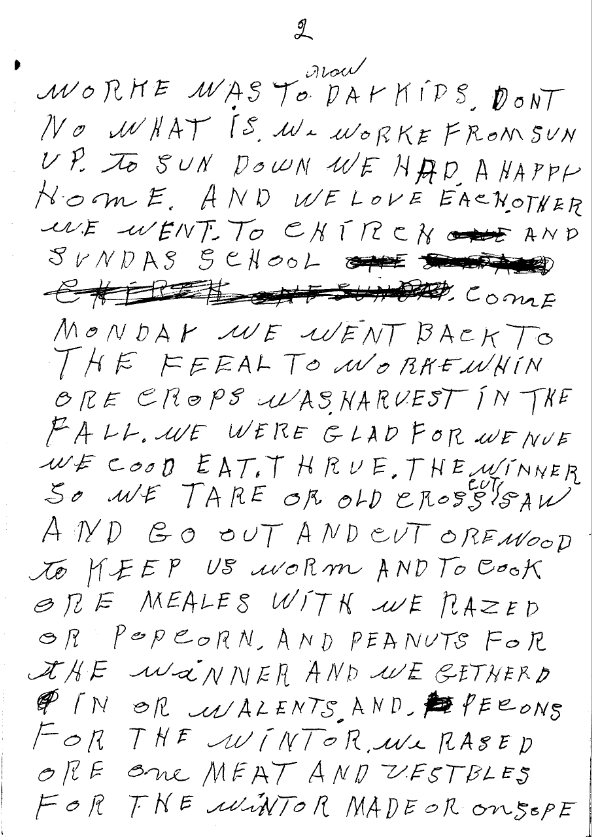 2
slow
WORKE WAS TO DAY KIDS. DONT
NO WHAT IS. WE WORKE FROM SUN
UP. TO SUN DOWN WE HAD. A HAPPY
HOME. AND WE LOVE EACH.OTHER
WE WENT. TO CHIRCH AND
SUNDAS SCHOOL
. COME
MONDAY WE WENT BACK TO
THE FEEAL TO WORKE WHIN
ORE CROPS WAS.HARVEST IN THE
FALL. WE WERE GLAD FOR WE NUE
WE COOD EAT. THRUE. THE WINNER
SO WE TARE OR OLD CROSS CUT SAW
AND GO OUT AND CUT ORE WOOD
to KEEP US WORM AND TO COOK
ORE MEALES WITH WE RAZED
OR POPCORN. AND PEANUTS FOR
THE WINNER AND WE GETHERD
IN OR WALENTS. AND. PECONS
FOR THE WINTOR. WE RASED
ORE one MEAT AND VESTBLES
FOR THE WINTOR MADE OR on SOPE